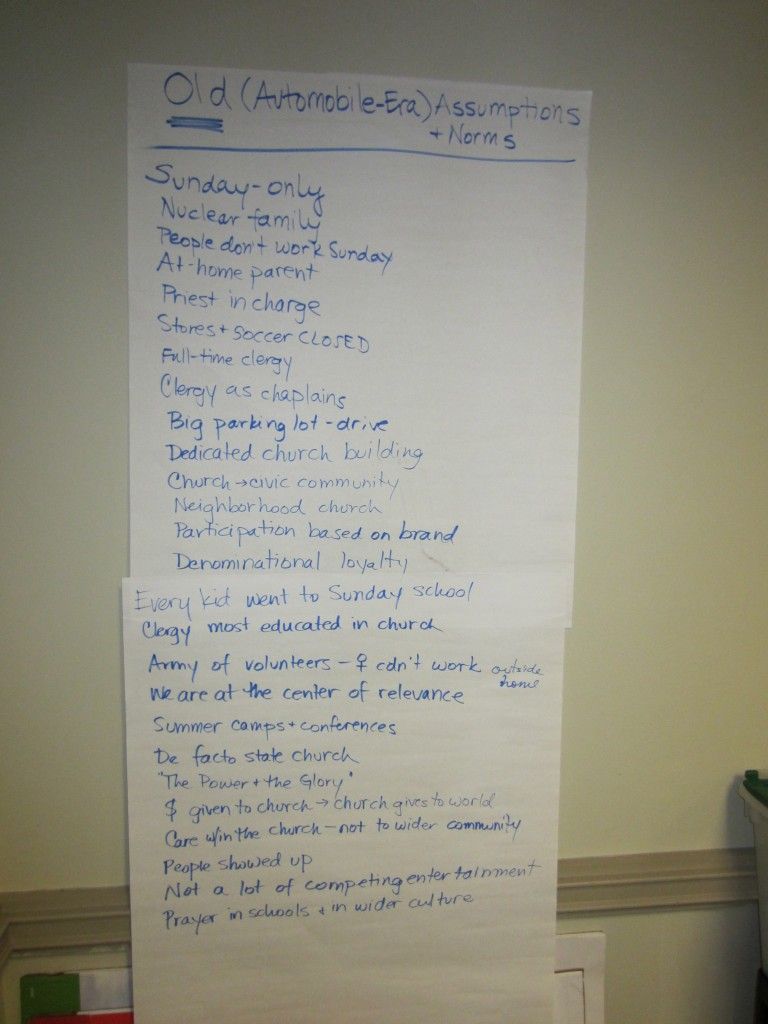 Old (Automobile-Era) Assumptions
+ Norms
Sunday-only
Nuclear family
People don't work Sunday
At-home parent
Priest in charge
Stores + soccer CLOSED
Full-time clergy
Clergy as chaplains
Big parking lot - drive
Dedicated church building
Church → civic community
Neighborhood church
Participation based on brand
Denominational loyalty
Every kid went to Sunday school
Clergy most educated in church
Army of volunteers - ♀ cdn't work outside home
We are at the center of relevance
Summer camps + conferences
De facto state church
"The Power + the Glory"
$ given to church → church gives to world
Care w/in the church - not to wider community
People showed up
Not a lot of competing entertainment
Prayer in schools + in wider culture